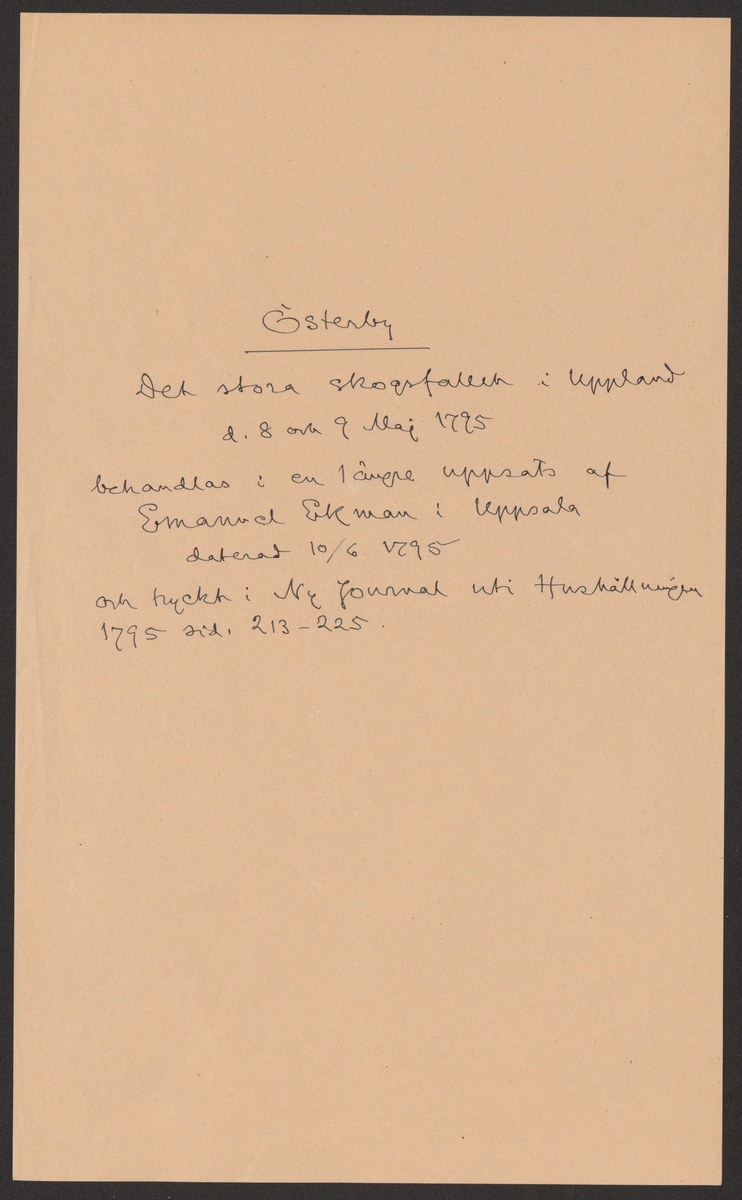 Österby
Det stora skogsfallet i Uppland
d. 8 och 9 Maj 1795
behandlas i en längre uppsats af
Emanuel Ekman i Uppsala
daterad 10/6 1795
och tryckt i Ny Journal uti Hushållningen
1795 sid. 213-225.